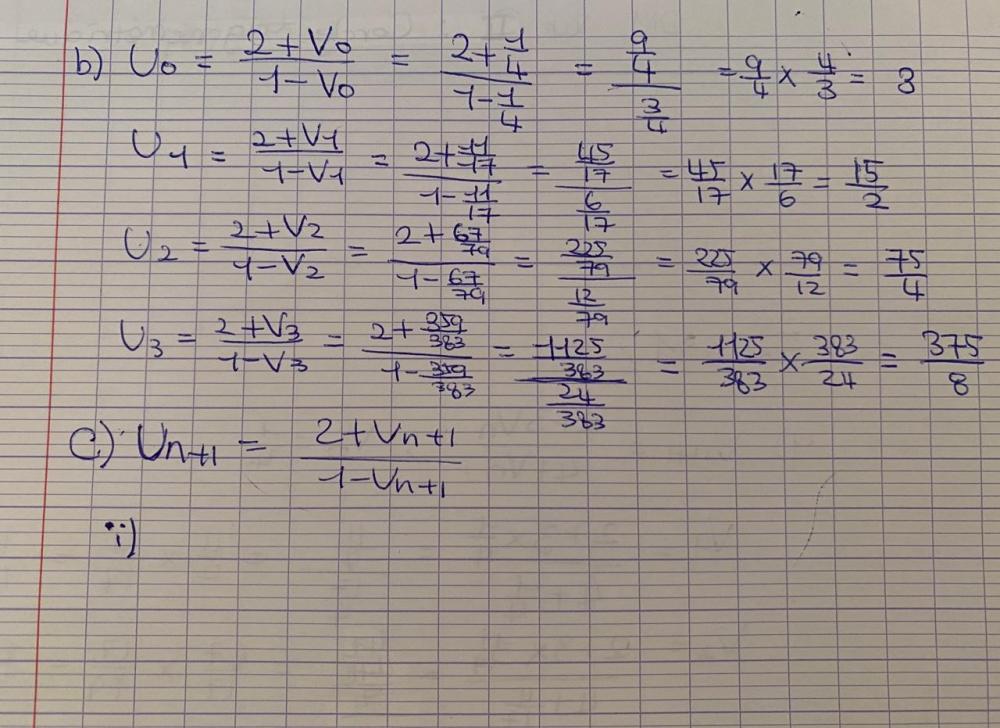 b) U₀ = (2+V₀)/(1-V₀) = (2+1/4)/(1-1/4) = (9/4)/(3/4) = 9/4 × 4/3 = 3
U₁ = (2+V1)/(1-V1) = (2+11/17)/(1-11/17) = (45/17)/(6/17) = 45/17 × 17/6 = 15/2
U₂ = (2+V2)/(1-V2) = (2+67/79)/(1-67/79) = (225/79)/(12/79) = 225/79 × 79/12 = 75/4
U₃ = (2+V3)/(1-V3) = (2+359/383)/(1-359/383) = (1125/383)/(24/383) = 1125/383 × 383/24 = 375/8
C) Un+1 = (2+Vn+1)/(1-Vn+1)
i)